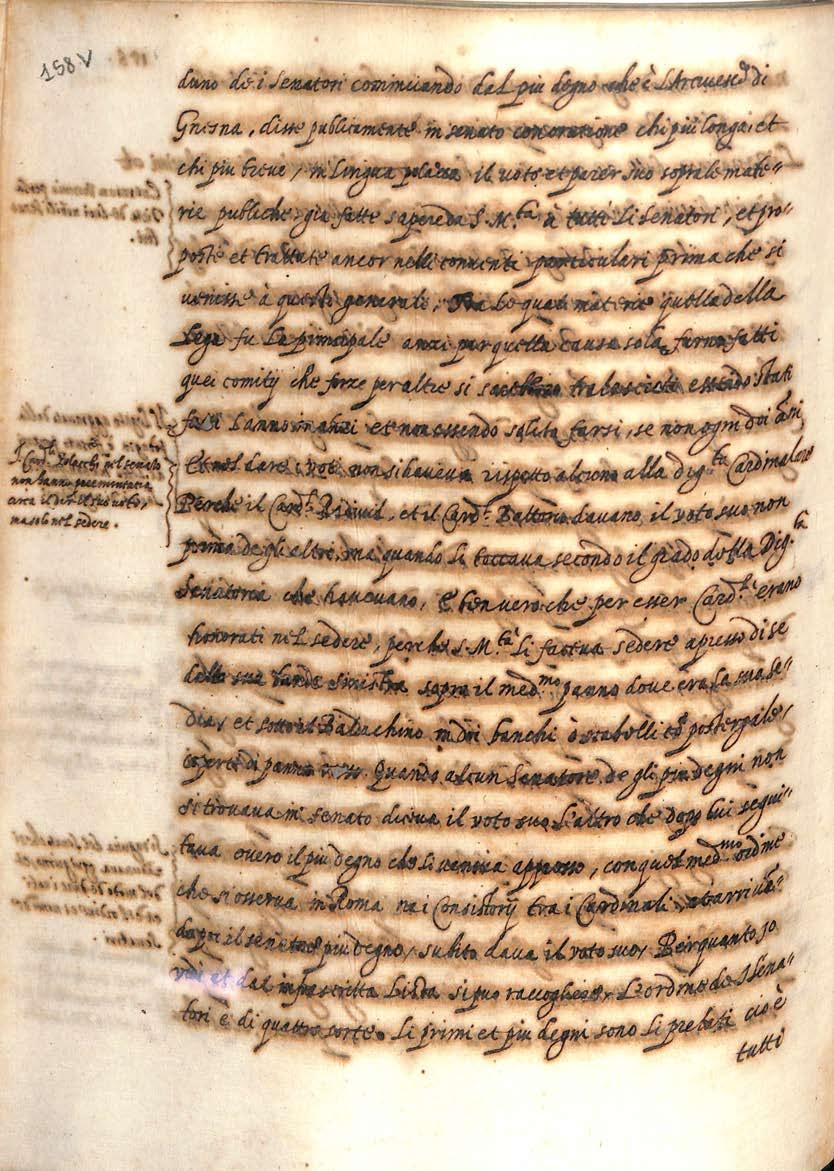 158 V
duno de i Senatori cominciando dal piu degno che è l'Arcivesco di
Gnesna, disse publicamente in senato con oratione chi piu longa, et
chi piu breve, in lingua polacca il voto et parer suo sopra le mate=
rie publiche gia fatte sapere da S. M.ta à tutti li Senatori, et pro=
poste et trattate ancor nelli conventi particulari prima che si
venisse à questi generale, Fra le quali materie quella della
Lega fu la principale anzi per quella causa sola furno fatti
quei comitij che forze per altre si sarebbero trabasciati essendo stati
fatti l'anno inanzi et non essendo solito farsi, se non ogni doi anni
Et nel dare i voti non si haveva rispetto alcuno alla dig.ta Cardinalere
Perche il Card.l Radivil, et il Card.l Battorio davano il voto suo non
prima de gli altri, ma quando li toccava secondo il grado della Dig.ta
Senatorea che havevano, E ben vero che per esser Card.li erano
honorati nel sedere, perche S. M.tà li faceva sedere apresso di se
dalla sua banda sinistra sopra il med.mo panno dove era la sua se=
dia, et sotto il Baldachino in doi banchi ò scabelli cō postergale,
coperti di panno rosso. Quando alcun Senatore de gli piu degni non
si trovava in senato diceva il voto suo l'altro che dopo lui segui=
tava overo il piu degno che li veniva appresso, con quel med.mo ordine
che si osserva in Roma nei Consistorij tra i Cardinali, et arrivā=
do poi il senatore piu degno, subito dava il voto suo, Per quanto io
vidi et dal infrascritta Lista si puo raccogliere, L'ordine de i Sena=
tori è di quattro sorte. Li primi et piu degni sono li prelati cio è
tutti
I Card.li Polacchi nel senato
non hanno preeminenza
circa il dir il suo voto,
ma solo nel sedere.